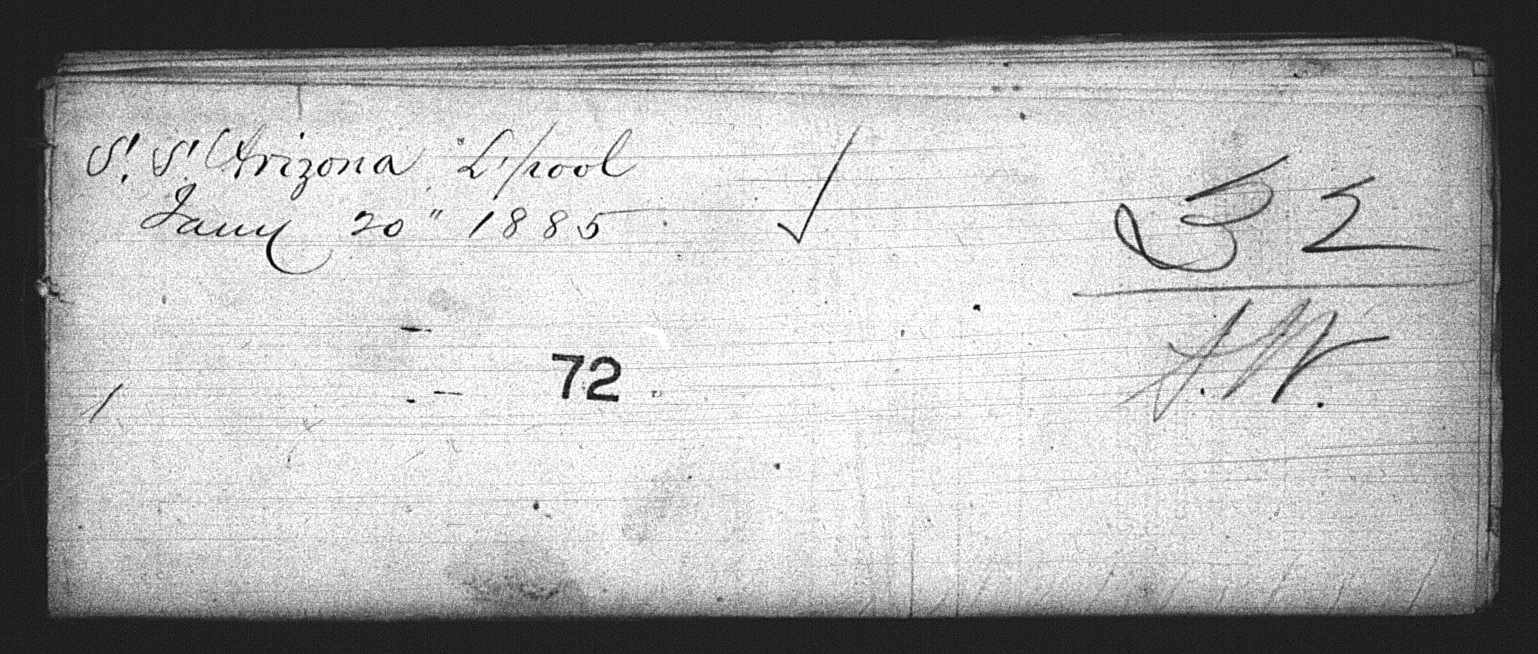 S. S. Arizona L'pool
Jany 20" 1885
32
72